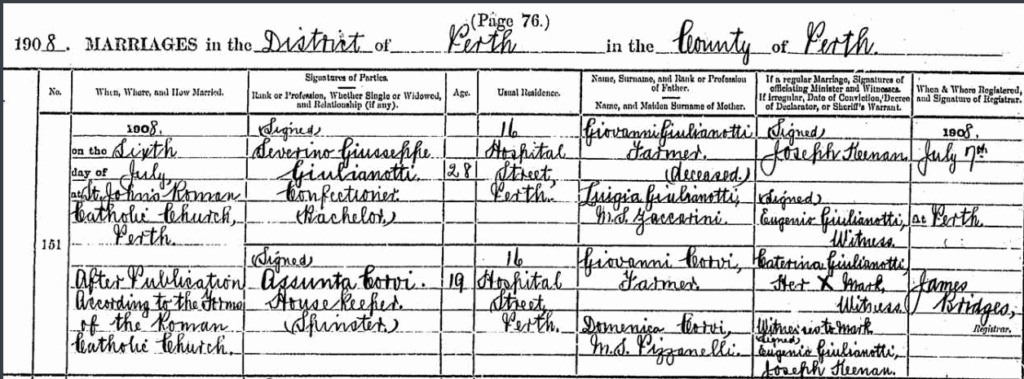 (Page 76.)
1908. MARRIAGES in the District of Perth in the County of Perth.
No.
When, Where, and How Married.
Signatures of Parties.
Rank or Profession, Whether Single or Widowed, and Relationship (if any).
Age.
Usual Residence.
Name, Surname, and Rank or Profession of Father.
Name, and Maiden Surname of Mother.
If a regular Marriage, Signatures of officiating Minister and Witnesses.
If irregular, Date of Conviction, Decree of Declarator, or Sheriff's Warrant.
When & Where Registered, and Signature of Registrar.
151
1908.
on the Sixth
day of July,
at St. John's Roman
Catholic Church,
Perth.
After Publication
According to the Forms
of the Roman
Catholic Church.
(Signed)
Severino Giusseppe
Giulianotti.
Confectioner
(Bachelor)
(Signed)
Assunta Corvi.
Housekeeper.
(Spinster)
28
19
16
Hospital
Street,
Perth.
16
Hospital
Street
Perth.
Giovanni Giulianotti
Farmer.
(deceased)
Luigia Giulianotti,
M.S. Zaccarini.
Giovanni Corvi,
Farmer.
Domenica Corvi,
M.S. Pizzanelli.
(Signed)
Joseph Keenan.
(Signed)
Eugenio Giulianotti,
Witness.
Caterina Giulianotti,
Her X Mark,
Witness.
Witnesses to Mark
(Signed)
Eugenio Giulianotti,
Joseph Keenan.
1908.
July 7th
at Perth.
James
Bridges,
Registrar.